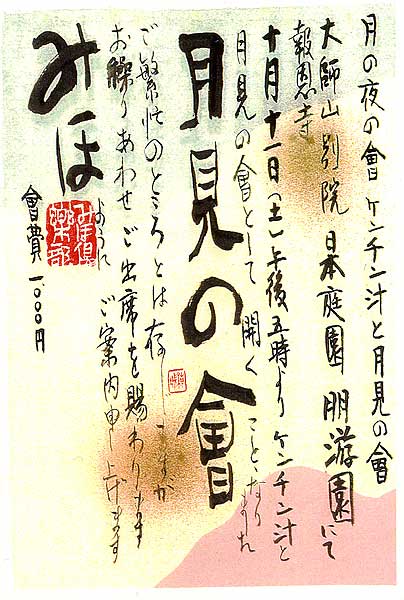 月の夜の會 ケンチン汁と月見の會
大師山別院 日本庭園 朋游園にて
報恩寺
十月十一日(土)午後五時より ケンチン汁と
月見の會として 開く ことゝなりました
月見の會
ご繁忙のところとは存じますが
お繰りあわせ ご出席を賜わります
ように ご案内申し上げます
みほ
みほ倶
樂部
會費 一、〇〇〇円